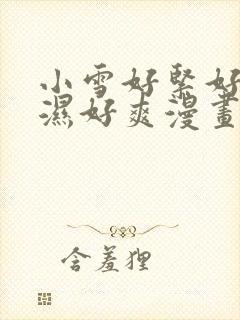 小雪好緊好
濕好爽漫畫
含羞狸